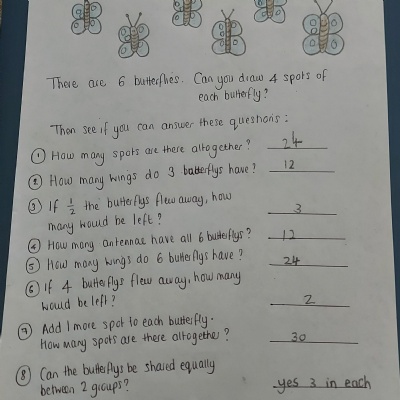 There are 6 butterflies. Can you draw 4 spots of
each butterfly?
Then see if you can answer these questions:
① How many spots are there altogether? 24
② How many wings do 3 butterflys have? 12
③ If 1/2 the butterflys flew away, how
many would be left? 3
④ How many antennas have all 6 butterflys? 12
⑤ How many wings do 6 butterflys have? 24
⑥ If 4 butterflys flew away, how many
would be left? 2
⑦ Add 1 more spot to each butterfly.
How many spots are there altogether? 30
⑧ Can the butterflys be shared equally
between 2 groups? yes 3 in each